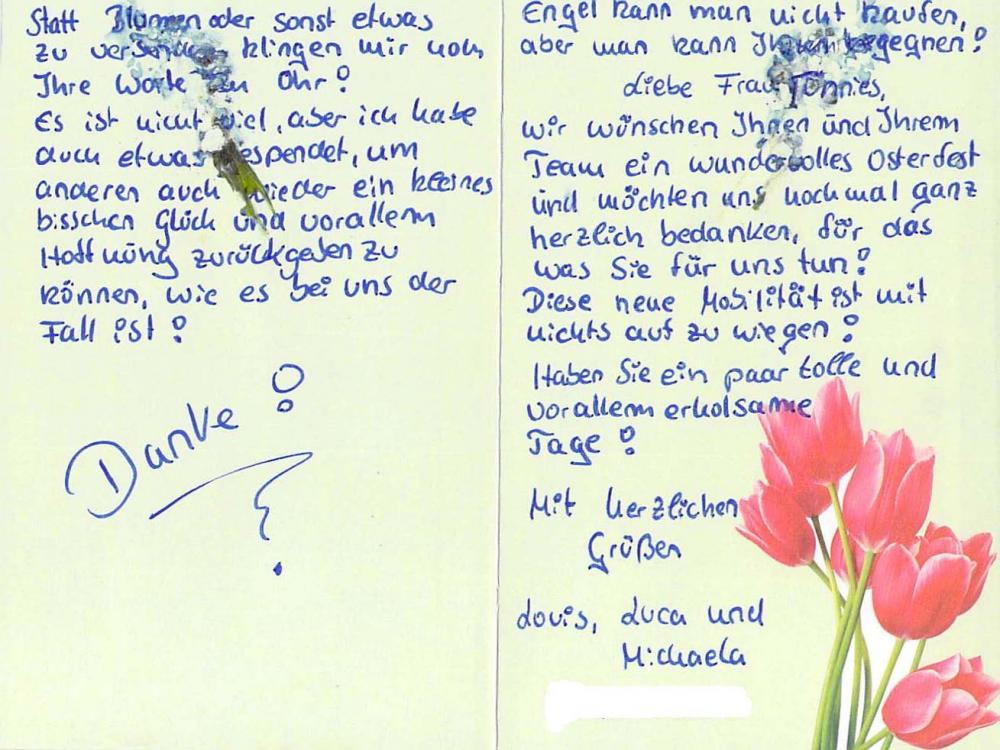 Statt Blumen oder sonst etwas
zu versenden klingen mir noch
Ihre Worte im Ohr!
Es ist nicht viel, aber ich habe
auch etwas gespendet, um
anderen auch wieder ein kleines
bisschen Glück und vorallem
Hoffnung zurückgeben zu
können, wie es bei uns der
Fall ist!
Danke!
Engel kann man nicht kaufen,
aber man kann Ihnen begegnen!
Liebe Frau Tönnies,
wir wünschen Ihnen und Ihrem
Team ein wundervolles Osterfest
und möchten uns nochmal ganz
herzlich bedanken, für das
was Sie für uns tun!
Diese neue Mobilität ist mit
nichts auf zu wiegen!
Haben Sie ein paar tolle und
vorallem erholsame
Tage!
Mit herzlichen
Grüßen
Louis, Luca und
Michaela